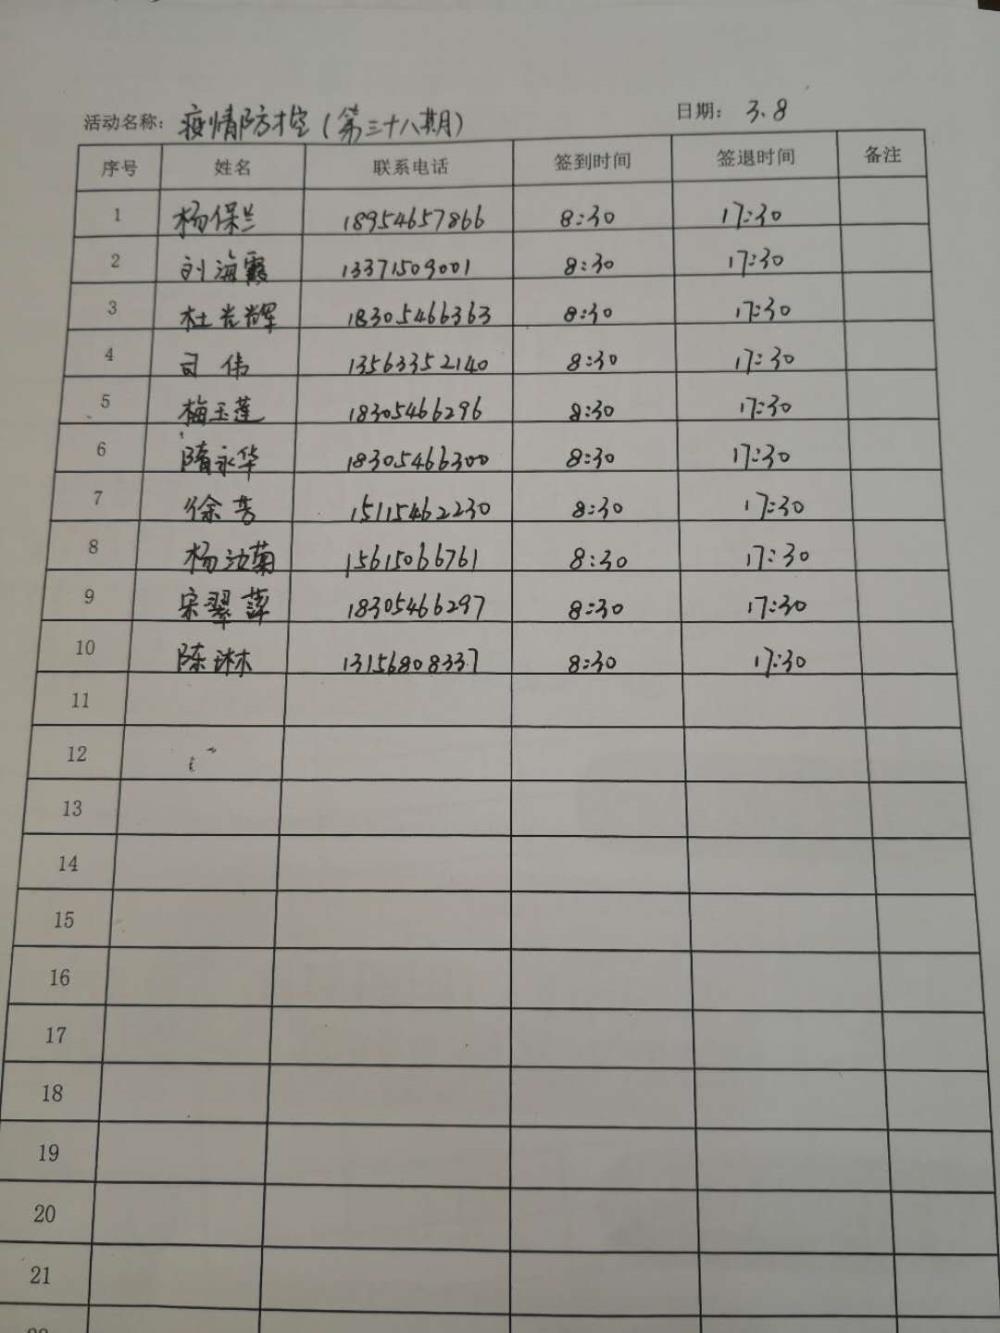 活动名称：疫情防控（第三十八期） 日期：3.8
序号 姓名 联系电话 签到时间 签退时间 备注
1 杨保兰 18954657866 8:30 17:30
2 刘海霞 13371509001 8:30 17:30
3 杜光辉 18305466363 8:30 17:30
4 司伟 13563352140 8:30 17:30
5 梅玉莲 18305466296 8:30 17:30
6 隋永华 18305466300 8:30 17:30
7 徐芳 15115462230 8:30 17:30
8 杨汝菊 15615066761 8:30 17:30
9 宋翠萍 18305466297 8:30 17:30
10 陈琳 13156808337 8:30 17:30
11
12
13
14
15
16
17
18
19
20
21